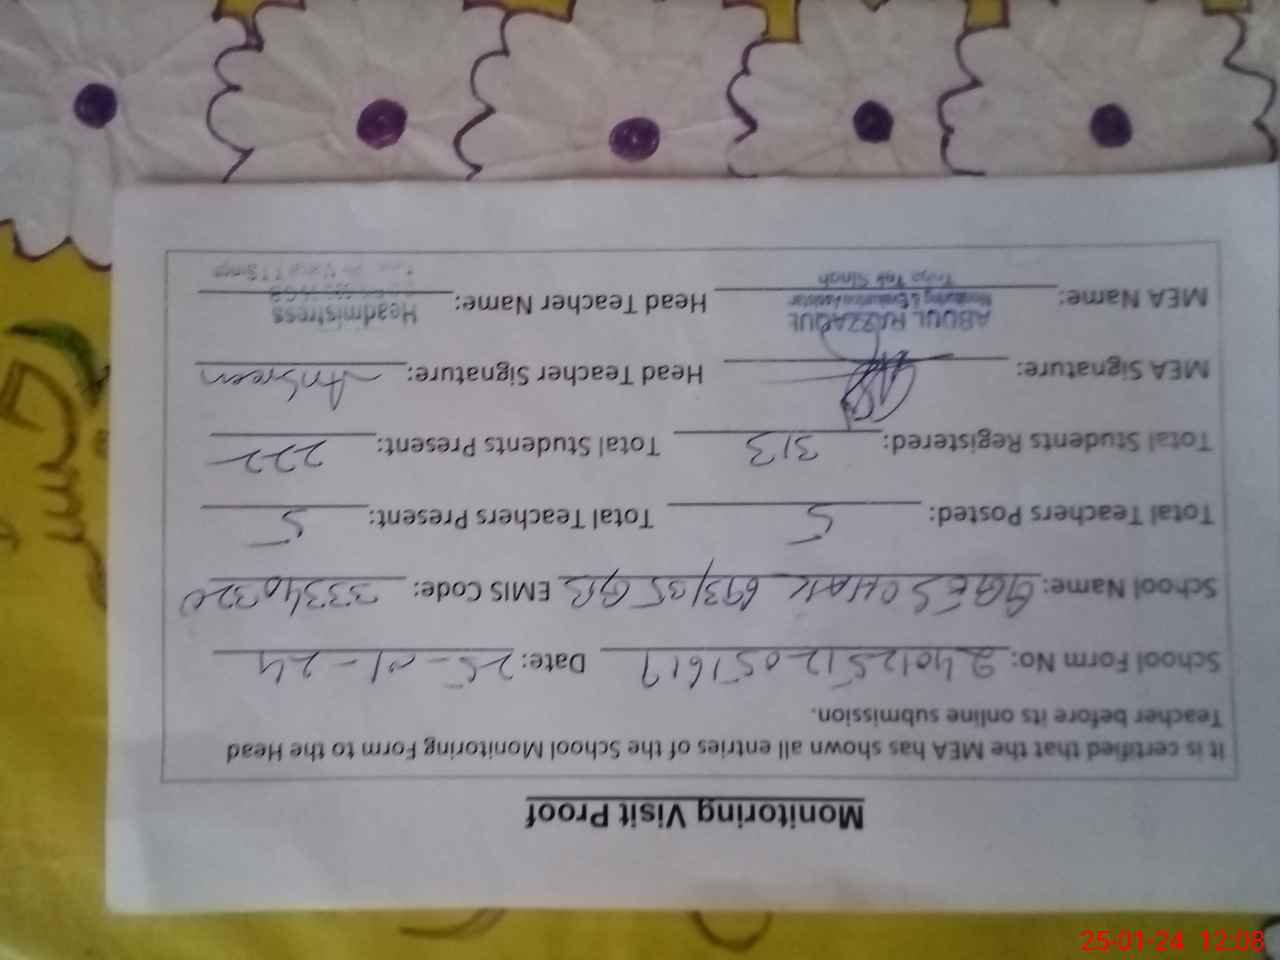 Monitoring Visit Proof
It is certified that the MEA has shown all entries of the School Monitoring Form to the Head
Teacher before its online submission.
School Form No: 24012512051619 Date: 25-01-24
School Name: GGES CHAK 693/35 GB EMIS Code: 33340320
Total Teachers Posted: 5 Total Teachers Present: 5
Total Students Registered: 313 Total Students Present: 222
MEA Signature: Head Teacher Signature: Ambreen
ABDUL RAZZAQUE
Monitoring & Evaluation Assistant
Toba Tek Singh
Headmistress
MEA Name: Head Teacher Name:
25-01-24 12:08